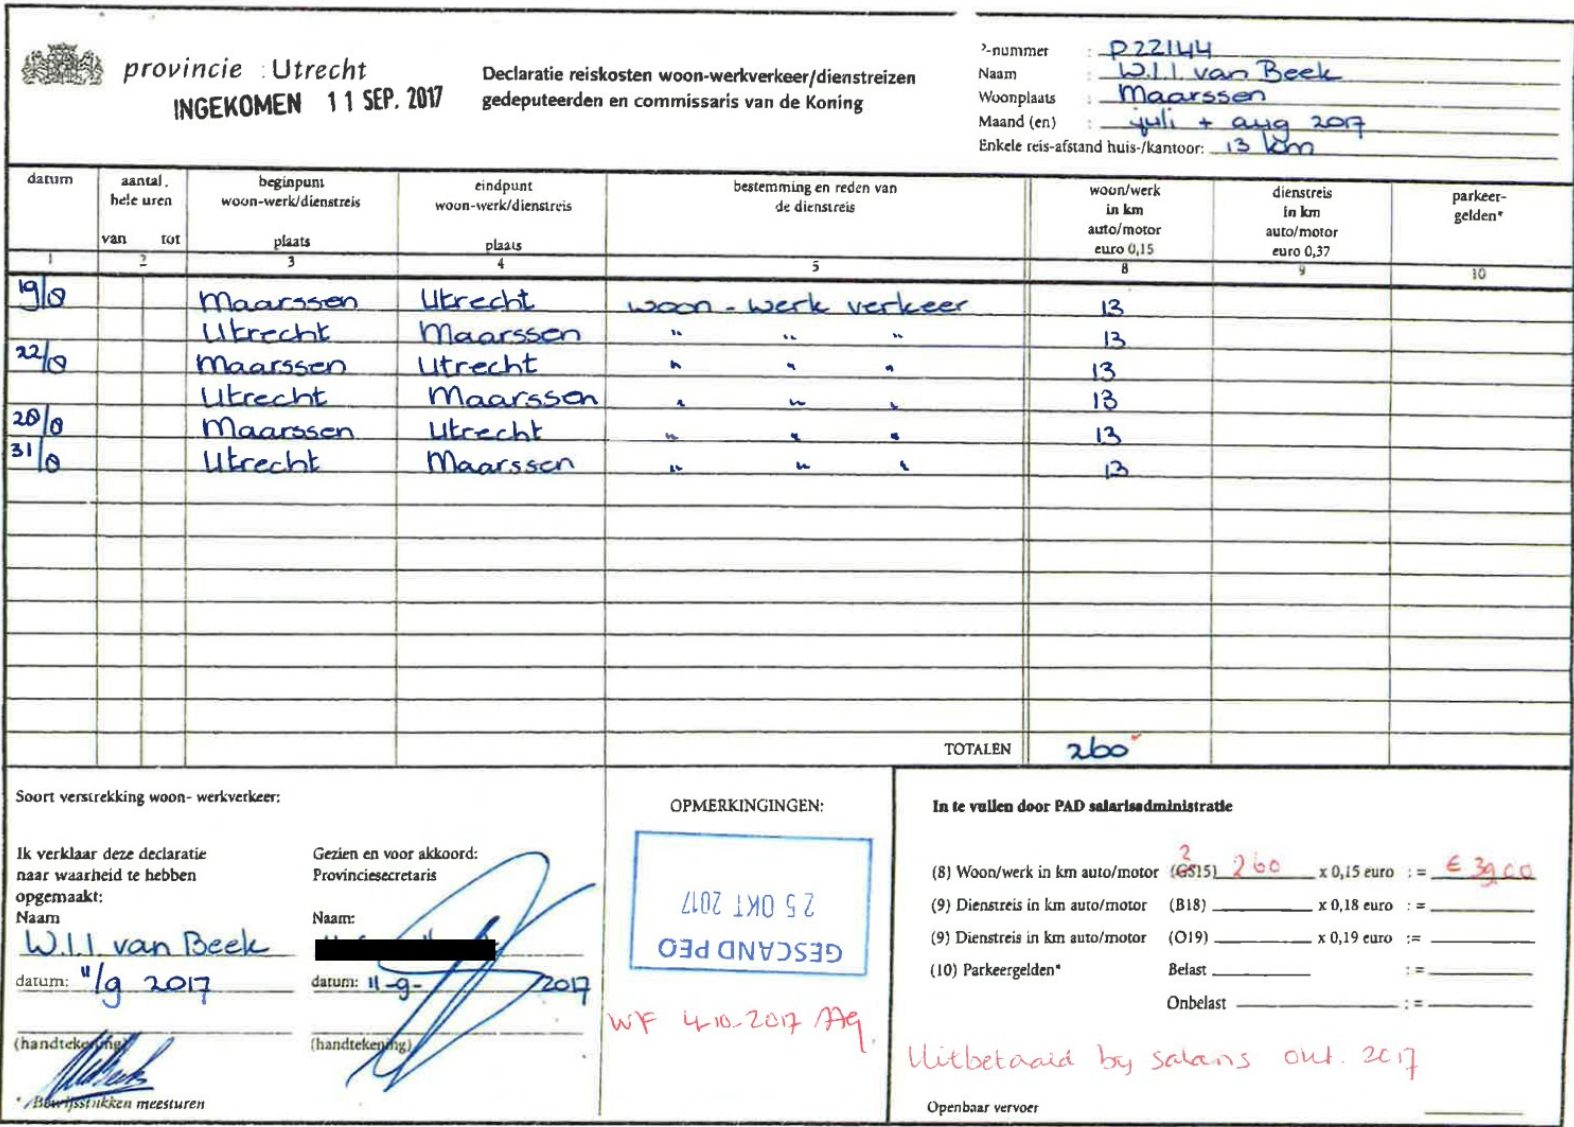 provincie Utrecht
INGEKOMEN 11 SEP. 2017
Declaratie reiskosten woon-werkverkeer/dienstreizen
gedeputeerden en commissaris van de Koning
-nummer : P22144
Naam : W.I.I. van Beek
Woonplaats : Maarssen
Maand (en) : juli + aug 2017
Enkele reis-afstand huis-/kantoor: 13 km
datum aantal hele uren van tot beginpunt woon-werk/dienstreis plaats eindpunt woon-werk/dienstreis plaats bestemming en reden van de dienstreis woon/werk in km auto/motor euro 0,15 dienstreis in km auto/motor euro 0,37 parkeer-gelden*
1 2 3 4 5 8 9 10
19/8 Maarssen Utrecht woon-werk verkeer 13
Utrecht Maarssen " " " 13
22/8 Maarssen Utrecht " " " 13
Utrecht Maarssen " " " 13
28/8 Maarssen Utrecht " " " 13
31/8 Utrecht Maarssen " " " 13
TOTALEN 260
Soort verstrekking woon- werkverkeer:
Ik verklaar deze declaratie
naar waarheid te hebben
opgemaakt:
Naam
W.I.I. van Beek
datum: 11/9 2017
(handtekening)
* Bewijsstukken meesturen
Gezien en voor akkoord:
Provinciesecretaris
Naam:
datum: 11-9- 2017
(handtekening)
OPMERKINGINGEN:
GESCAND PEO
25 OKT 2017
WF 4-10-2017
In te vullen door PAD salarisadministratie
(8) Woon/werk in km auto/motor (GS15) 260 x 0,15 euro : = € 39,00
(9) Dienstreis in km auto/motor (B18) x 0,18 euro : =
(9) Dienstreis in km auto/motor (O19) x 0,19 euro :=
(10) Parkeergelden* Belast : =
Onbelast : =
Uitbetaald bij salaris okt. 2017
Openbaar vervoer